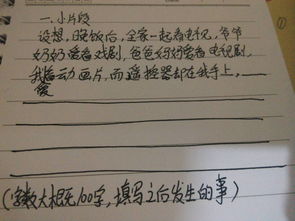 一.小片段
设想,晚饭后,全家一起看电视,爷爷
奶奶爱看戏剧,爸爸妈妈爱看电视剧,
我爱看动画片,而遥控器却在我手上,
(字数大概无100字,填写之后发生的事)
①